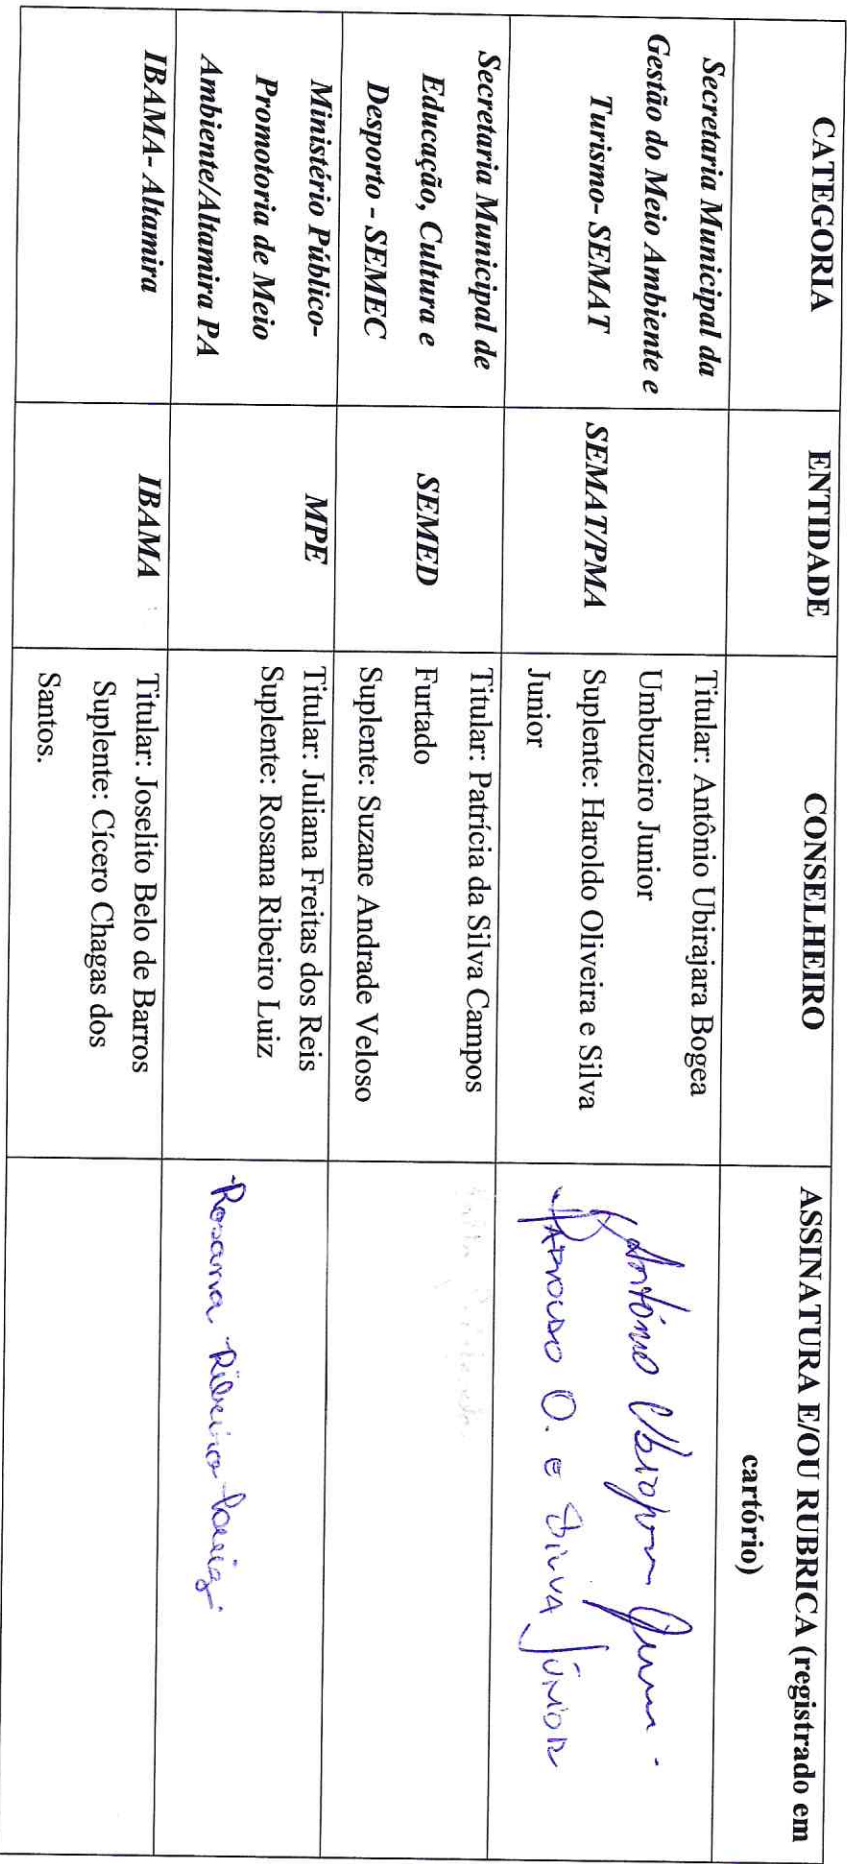 CATEGORIA
ENTIDADE
CONSELHEIRO
ASSINATURA E/OU RUBRICA (registrado em
cartório)
Secretaria Municipal da
Gestão do Meio Ambiente e
Turismo- SEMAT
SEMAT/PMA
Titular: Antônio Ubirajara Bogea
Umbuzeiro Junior
Suplente: Haroldo Oliveira e Silva
Junior
Antônio Ubirajara Junior
HAROLDO O. e SILVA JÚNIOR
Secretaria Municipal de
Educação, Cultura e
Desporto - SEMEC
SEMED
Titular: Patrícia da Silva Campos
Furtado
Suplente: Suzane Andrade Veloso
Ministério Público-
Promotoria de Meio
Ambiente/Altamira PA
MPE
Titular: Juliana Freitas dos Reis
Suplente: Rosana Ribeiro Luiz
Rosana Ribeiro Luiz
IBAMA- Altamira
IBAMA
Titular: Joselito Belo de Barros
Suplente: Cícero Chagas dos
Santos.